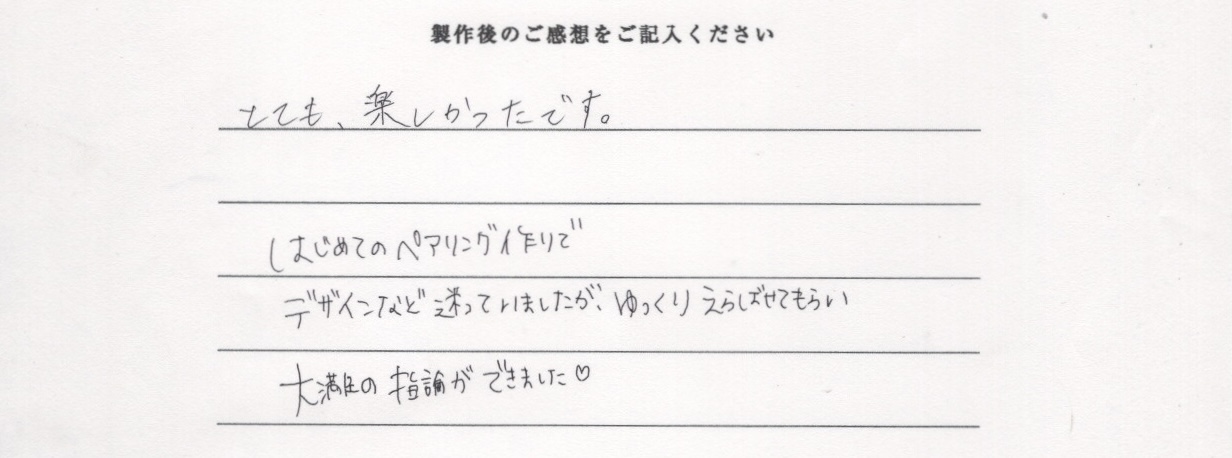 製作後のご感想をご記入ください
とても、楽しかったです。
はじめてのペアリング作りで
デザインなど迷っていましたが、ゆっくりえらばせてもらい
大満足の指論ができました♡